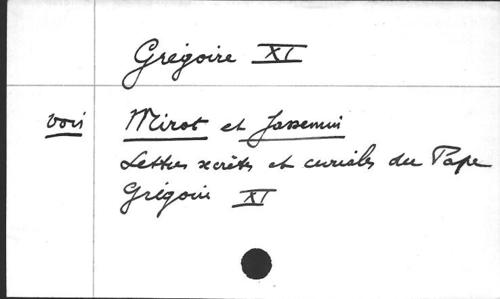 Grégoire XI
voir Mirot et Jassemin
Lettres secrètes et curiales du Pape
Grégoire XI